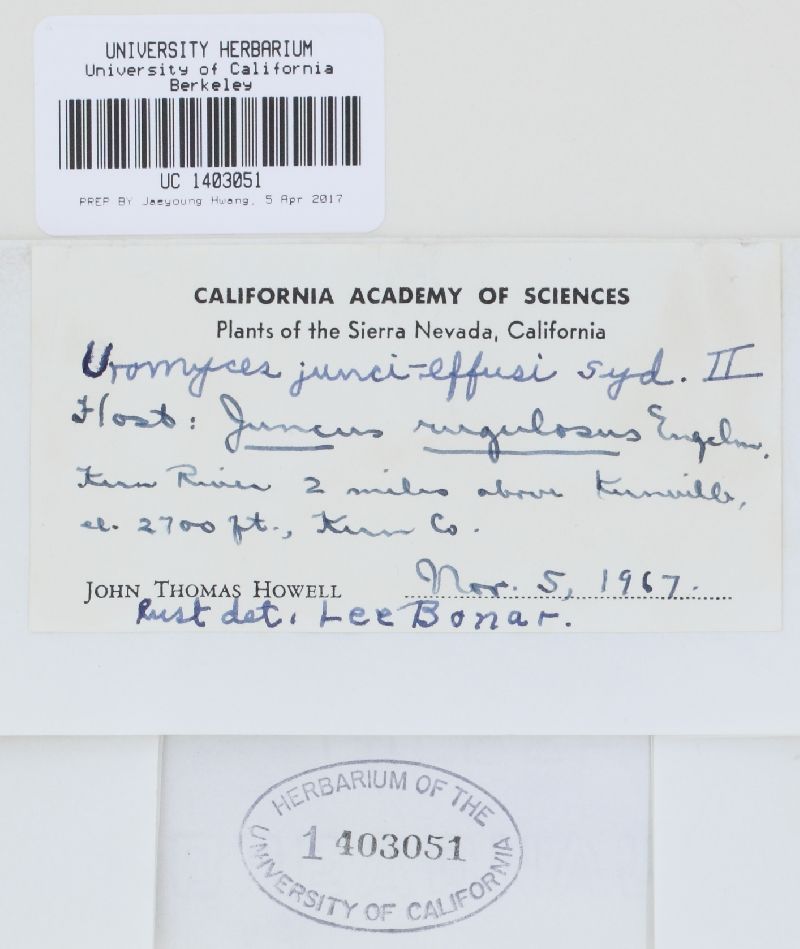 UNIVERSITY HERBARIUM
University of California
Berkeley
UC 1403051
PREP BY Jaeyoung Hwang, 5 Apr 2017
CALIFORNIA ACADEMY OF SCIENCES
Plants of the Sierra Nevada, California
Uromyces junci-effusi Syd. II
Host: Juncus rugulosus Engelm.
Kern River 2 miles above Kernville,
el. 2700 ft., Kern Co.
JOHN THOMAS HOWELL Nov. 5, 1967.
Rust det. Lee Bonar.
HERBARIUM OF THE
1403051
UNIVERSITY OF CALIFORNIA